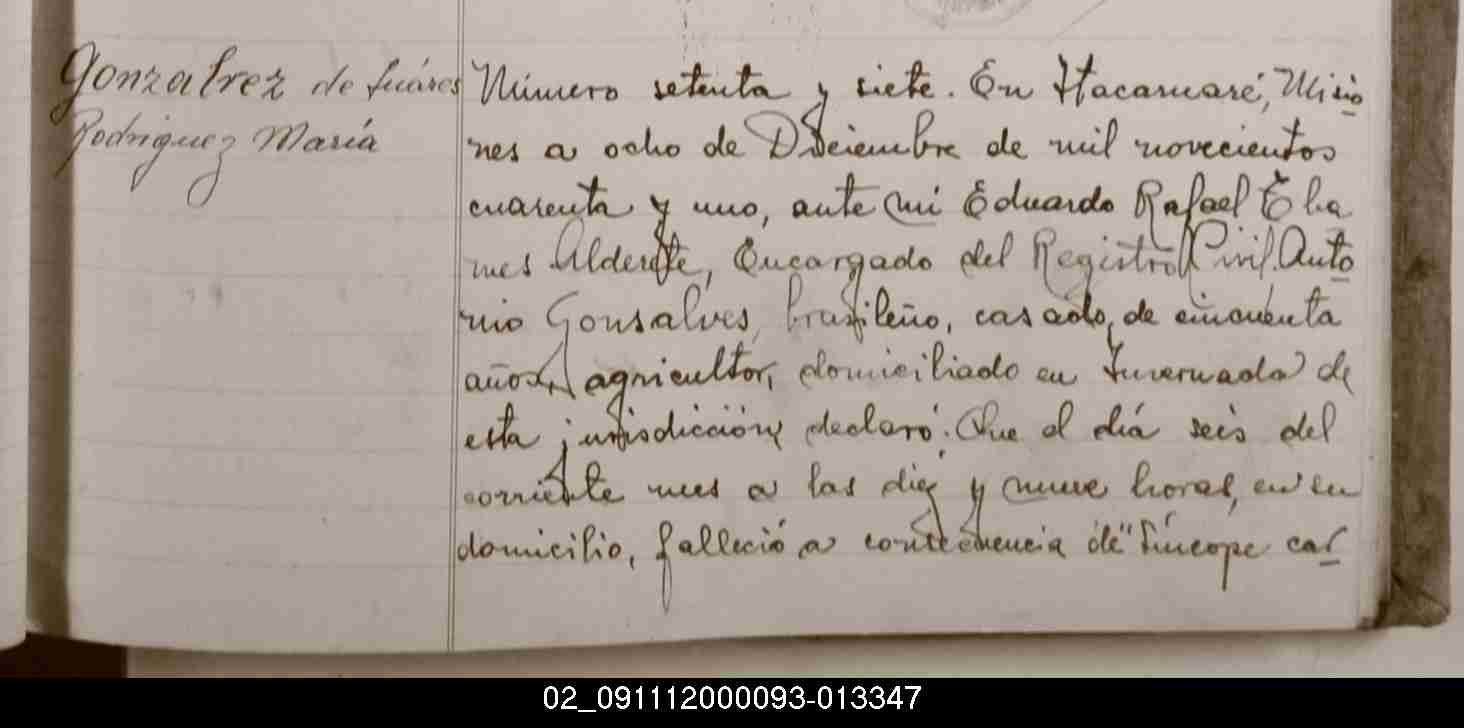 Gonzalvez de Suáres
Rodriguez María
Número setenta y siete. En Itacaruaré, Misio
nes a ocho de Diciembre de mil novecientos
cuarenta y uno, ante mi Eduardo Rafael
mes Alderete, Encargado del Registro Civil, Anto
nio Gonsalves, brasileño, casado, de cincuenta
años, agricultor, domiciliado en Invernada de
esta jurisdicción, declaró: Que el día seis del
corriente mes a las diez y nueve horas, en su
domicilio, falleció a consecuencia de "Síncope car
02_091112000093-013347